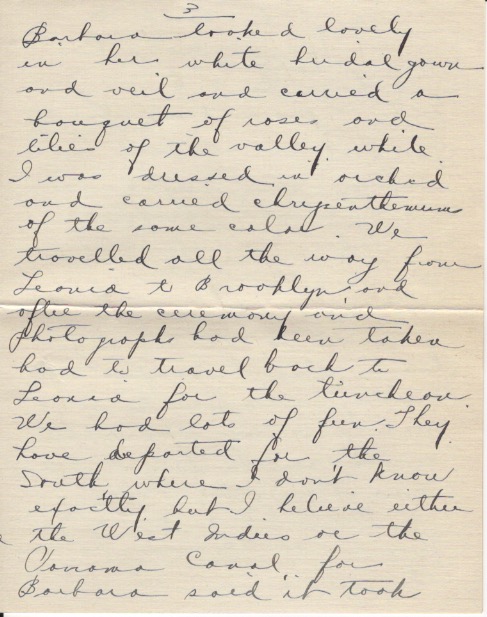 3
Barbara looked lovely
in her white bridal gown
and veil and carried a
bouquet of roses and
lilies of the valley while
I was dressed in orchid
and carried chrysenthemums
of the same color. We
travelled all the way from
Leonia to Brooklyn and
after the ceremony and
photographs had been taken
had to travel back to
Leonia for the luncheon.
We had lots of fun. They
have departed for the
South, where I don't know
exactly but I believe either
the West Indies or the
Panama Canal for
Barbara said it took